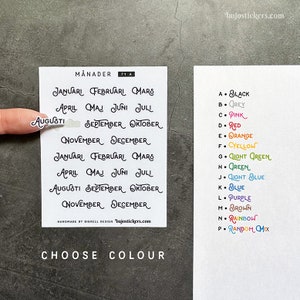 bujostickers.com
MÅNADER 71-A
Januari Februari Mars
April Maj Juni Juli
Augusti September Oktober
November December
Januari Februari Mars
April Maj Juni Juli
Augusti September Oktober
November December
HANDMADE BY BIGNELL DESIGN bujostickers.com
CHOOSE COLOUR
A • Black
B • Grey
C • Pink
D • Red
E • Orange
F • Yellow
G • Light Green
H • Green
J • Light Blue
K • Blue
L • Purple
M • Brown
N • Rainbow
P • Random Mix